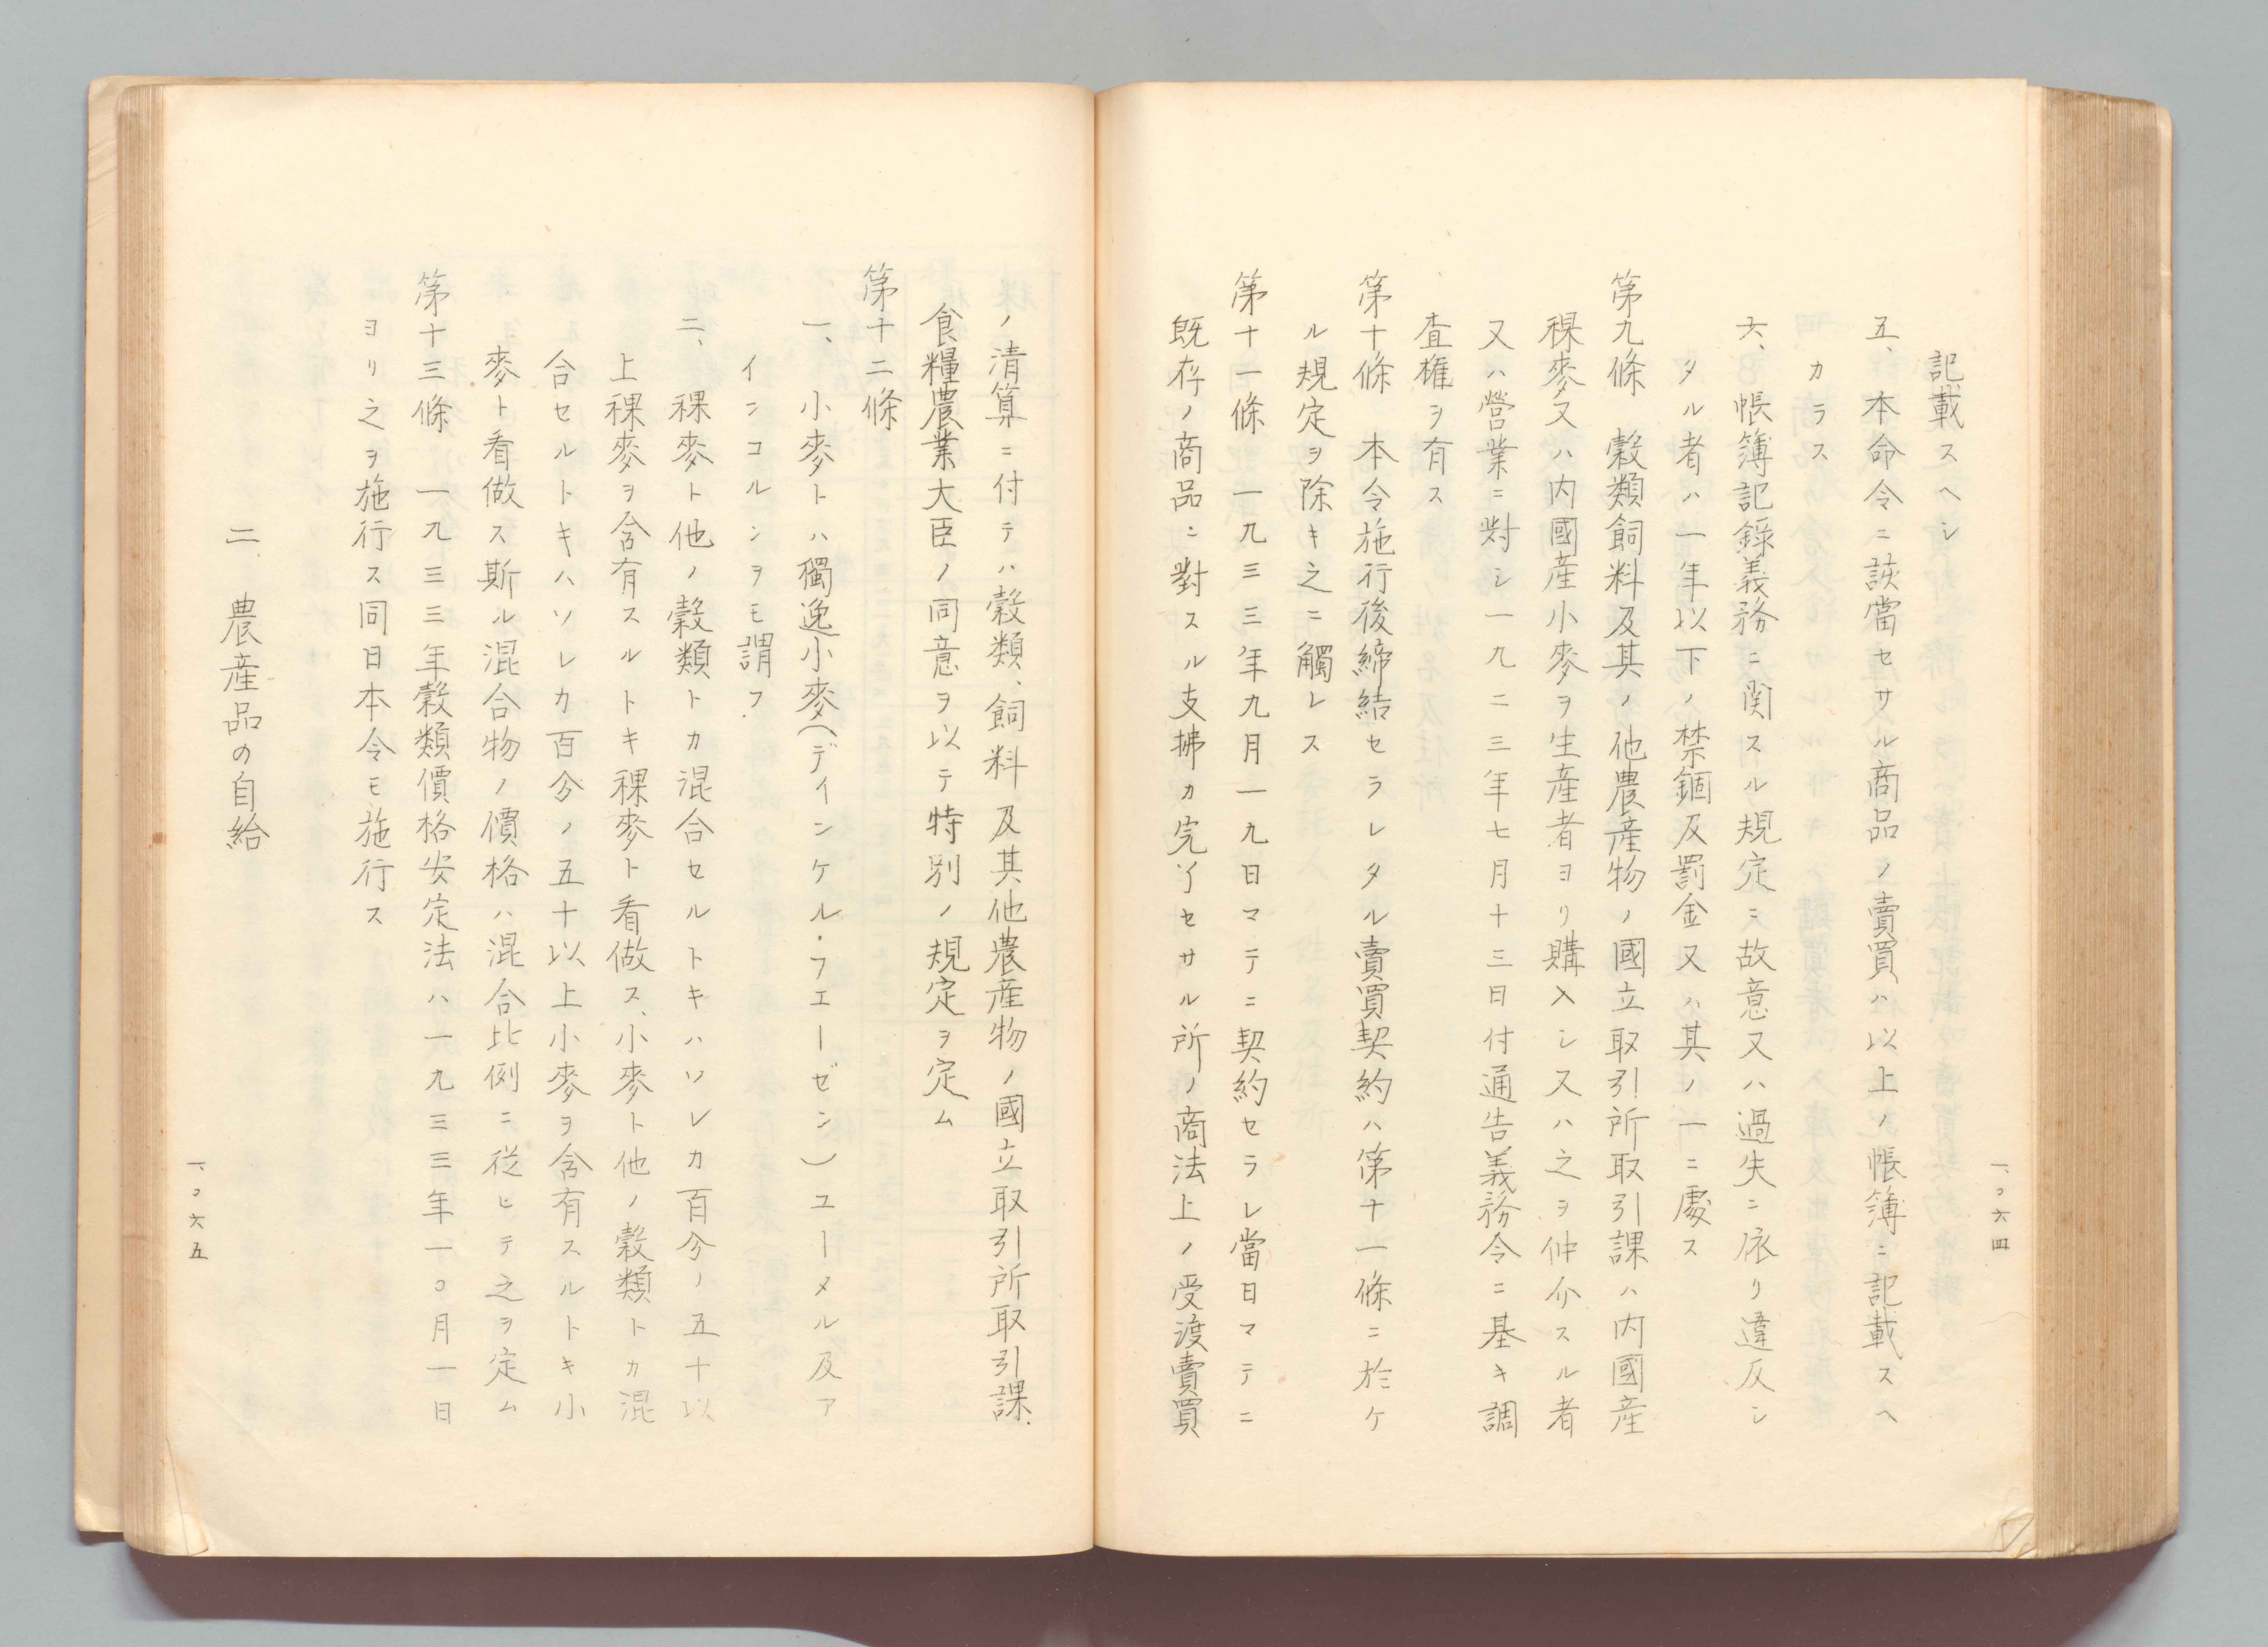 記載スヘシ
五、本命令ニ該當セサル商品ノ賣買ハ以上ノ帳簿ニ記載スヘ
カラス
六、帳簿記録義務ニ関スル規定ニ故意又ハ過失ニ依リ違反シ
タル者ハ一年以下ノ禁錮及罰金又ハ其ノ一ニ處ス
第九條　穀類飼料及其ノ他農産物ノ國立取引所取引課ハ内國産
稞麥又ハ内國産小麥ヲ生産者ヨリ購入シ又ハ之ヲ仲介スル者
又ハ營業ニ對シ一九二三年七月十三日付通告義務令ニ基キ調
査権ヲ有ス
第十條　本令施行後締結セラレタル賣買契約ハ第十一條ニ於ケ
ル規定ヲ除キ之ニ觸レス
第十一條　一九三三年九月一九日マテニ契約セラレ當日マテニ
既存ノ商品ニ對スル支拂カ完了セサル所ノ商法上ノ受渡賣買
一、〇六四
ノ清算ニ付テハ穀類、飼料及其他農産物ノ國立取引所取引課、
食糧農業大臣ノ同意ヲ以テ特別ノ規定ヲ定ム
第十二條
一、小麥トハ獨逸小麥(デインケル・フエーゼン)ユーメル及ア
インコルンヲモ謂フ
二、稞麥ト他ノ穀類トカ混合セルトキハソレカ百分ノ五十以
上稞麥ヲ含有スルトキ稞麥ト看做ス、小麥ト他ノ穀類トカ混
合セルトキハソレカ百分ノ五十以上小麥ヲ含有スルトキ小
麥ト看做ス斯ル混合物ノ價格ハ混合比例ニ從ヒテ之ヲ定ム
第十三條　一九三三年穀類價格安定法ハ一九三三年一〇月一日
ヨリ之ヲ施行ス同日本令モ施行ス
二、農産品の自給
一、〇六五